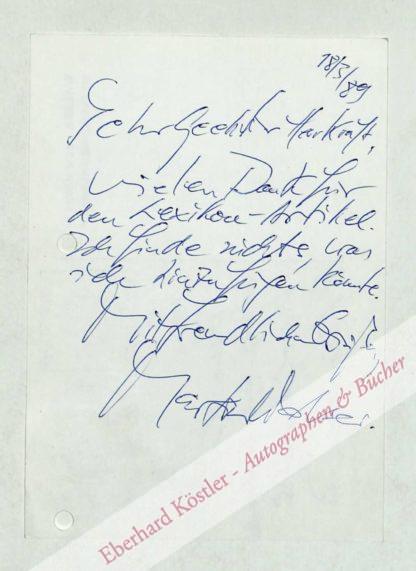 18/3/89
Sehr geehrter Herr Kraft,
vielen Dank für
den Lexikon-Artikel.
Ich finde nichts, was
ich hinzufügen könnte.
Mit freundlichen Grüßen,
Martin Walser.
Eberhard Köstler - Autographen & Bücher